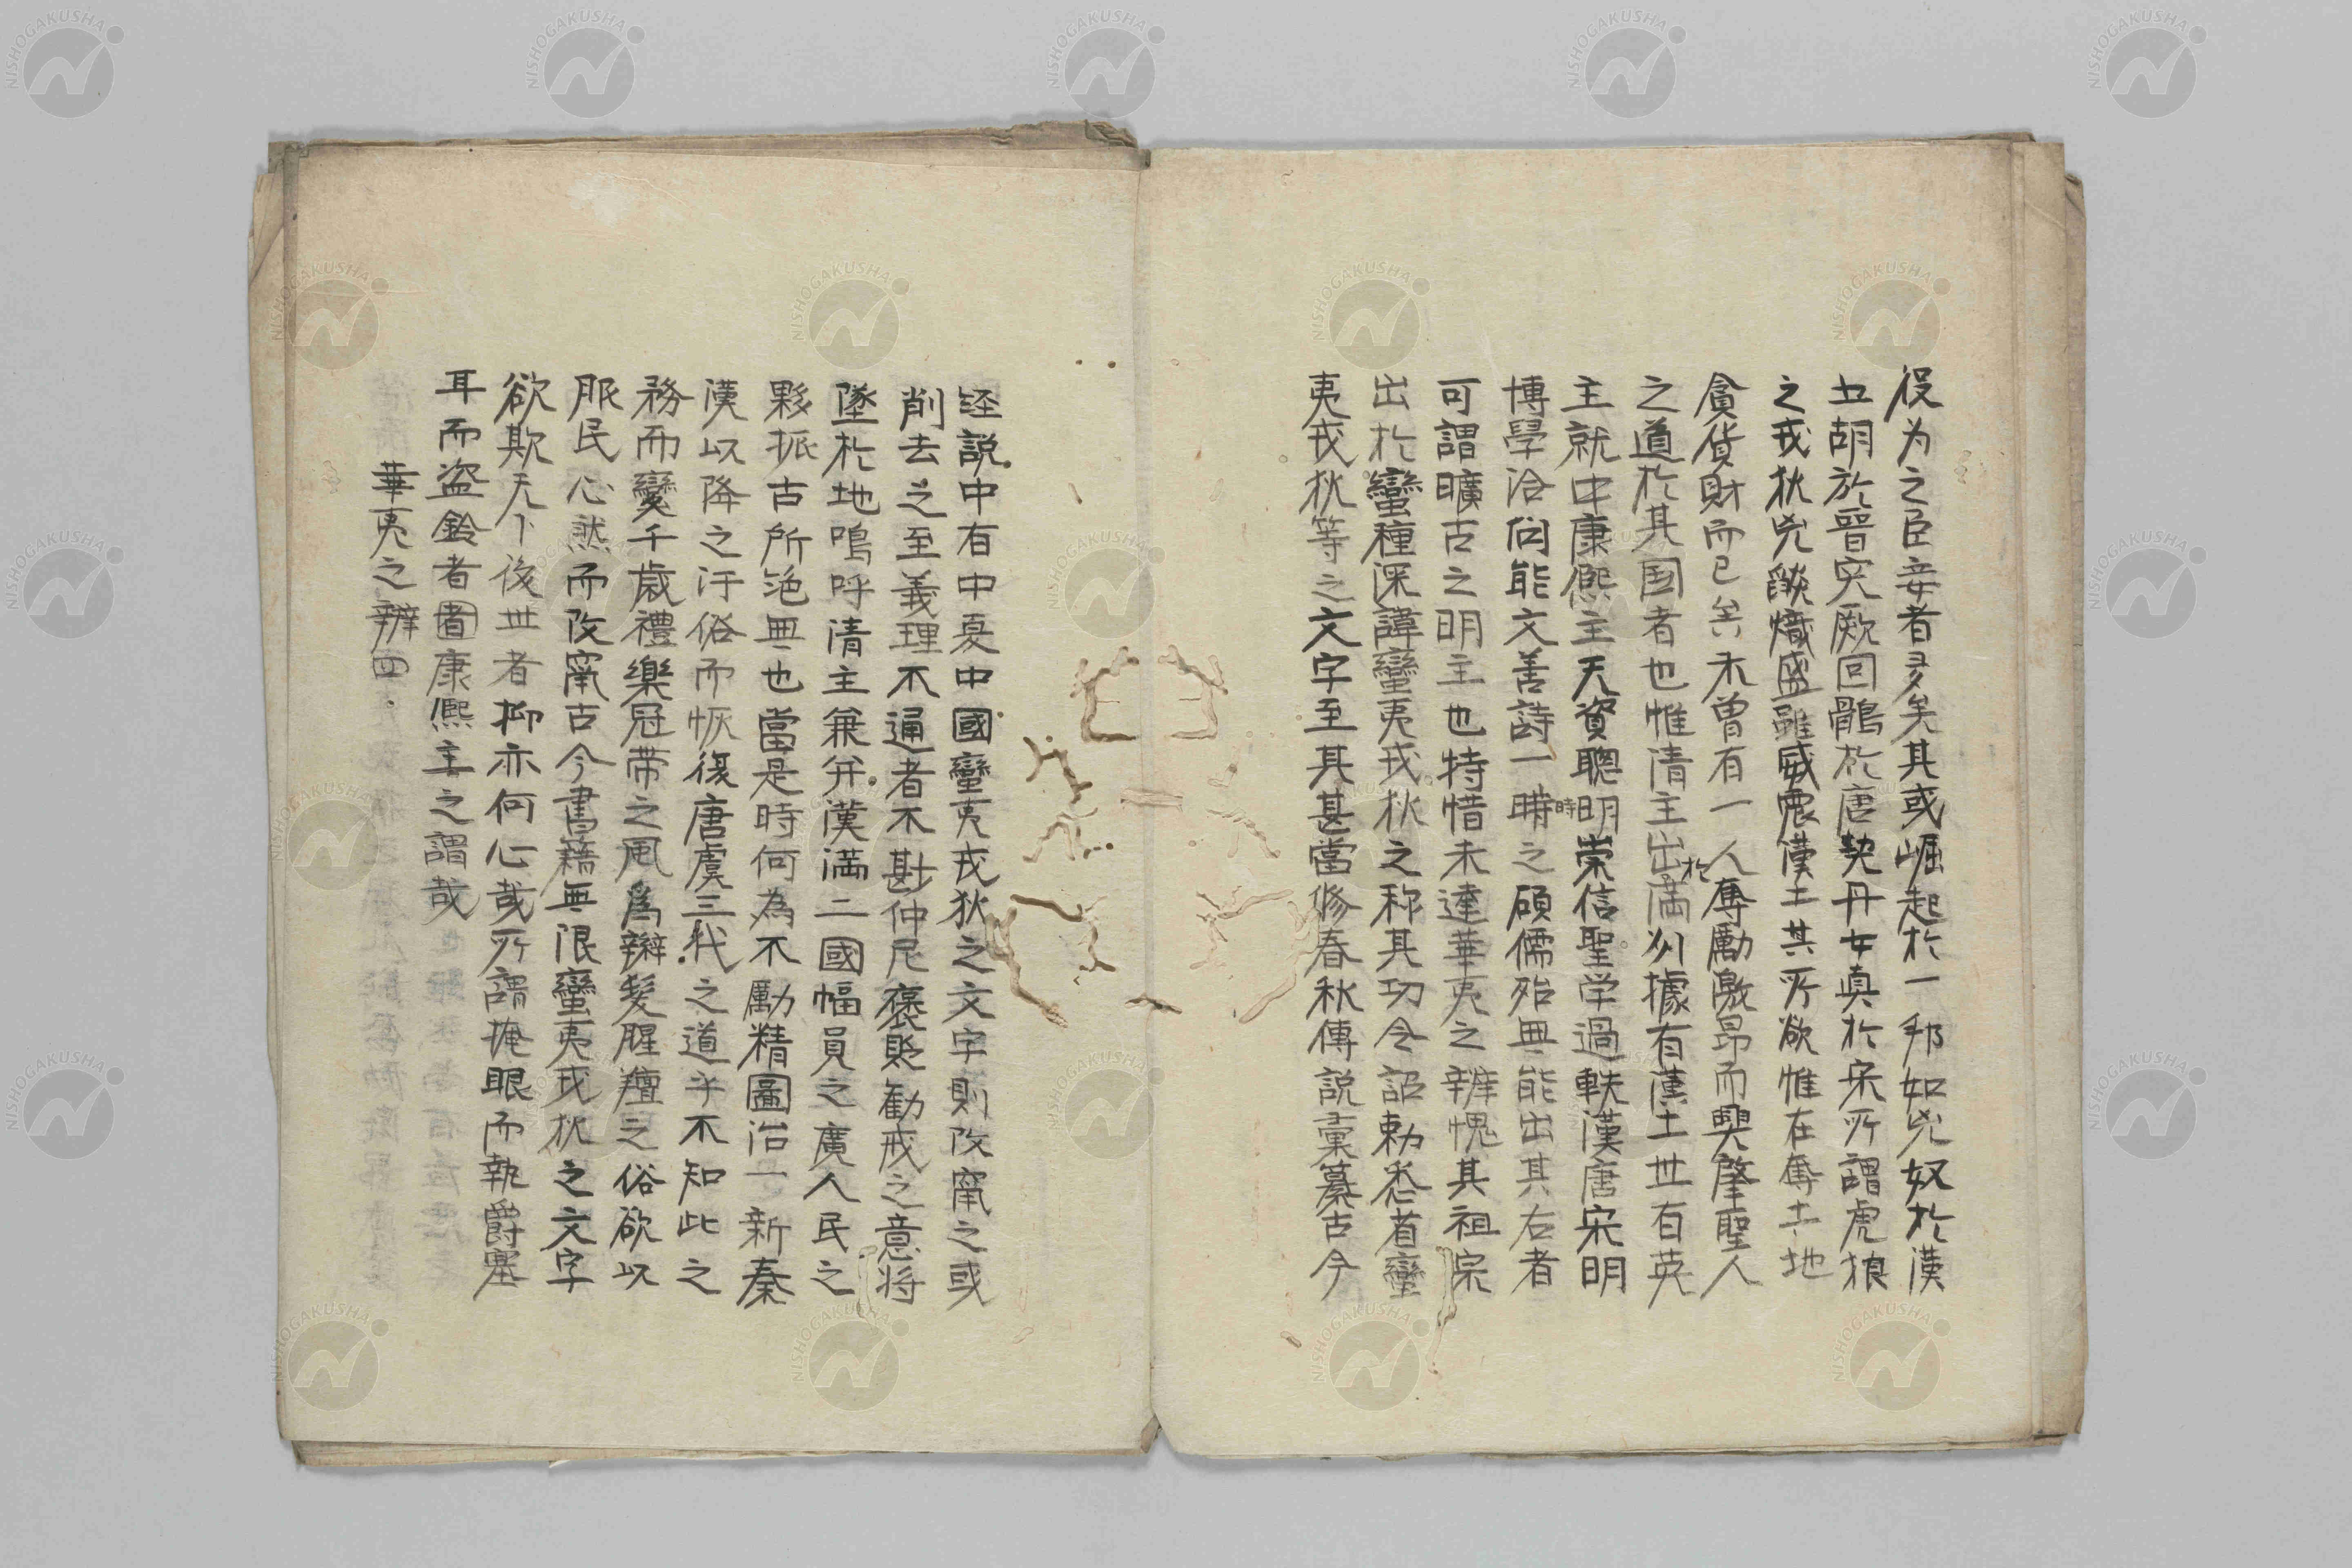 役为之臣妾者多矣其或崛起於一邦如兇奴於漢
五胡於晉突厥回鶻於唐契丹女真於宋所謂虎狼
之戎狄兇燄熾盛雖威震漢土其所欲惟在奪土地
貪貨財而已矣未曽有一人奮勵激昂而興肇聖人
之道於其国者也惟清主出於満州據有漢土世有英
主就中康熙主天資聰明崇信聖学過軼漢唐宋明
博學洽問能文善詩一時之碩儒殆無能出其右者
可謂曠古之明主也特惜未達華夷之辨愧其祖宗
出於蠻種深諱蠻夷戎狄之称其功令詔勅悉省蠻
夷戎狄等之文字至其甚當修春秋傳説彙纂古今
经説中有中夏中國蠻夷戎狄之文字則改竄之或
削去之至義理不通者不斟仲尼褒貶勧戒之意将
墜於地嗚呼清主兼并漢満二國幅員之廣人民之
夥振古所絶無也當是時何為不勵精圖治一新秦
漢以降之汙俗而恢復唐虞三代之道乎不知此之
務而變千歳禮樂冠帯之風為辮髮腥羶之俗欲以
服民心然而改竄古今書籍無限蠻夷戎狄之文字
欲欺天下後世者抑亦何心哉所謂掩眼而執爵塞
耳而盗鈴者啚康熙主之謂哉
華夷之辨四
NISHOGAKUSHA